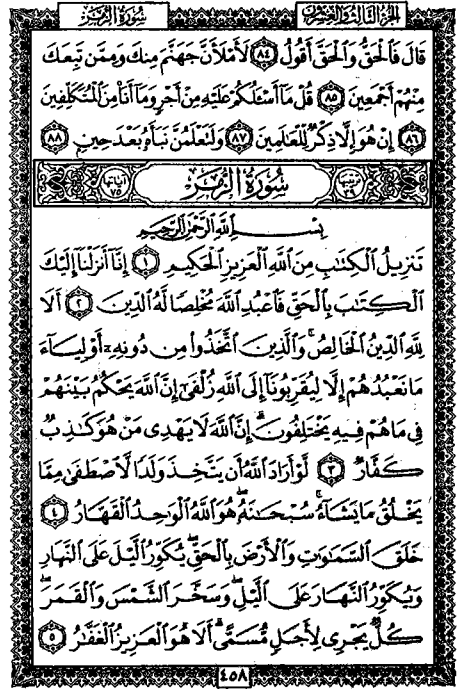 سُورَةُ الزُّمَر
الجزء الثالث والعشرون
قَالَ فَٱلْحَقُّ وَٱلْحَقَّ أَقُولُ ٨٤ لَأَمْلَأَنَّ جَهَنَّمَ مِنكَ وَمِمَّن تَبِعَكَ
مِنْهُمْ أَجْمَعِينَ ٨٥ قُلْ مَآ أَسْـَٔلُكُمْ عَلَيْهِ مِنْ أَجْرٍ وَمَآ أَنَا۠ مِنَ ٱلْمُتَكَلِّفِينَ
٨٦ إِنْ هُوَ إِلَّا ذِكْرٌ لِّلْعَـٰلَمِينَ ٨٧ وَلَتَعْلَمُنَّ نَبَأَهُۥ بَعْدَ حِينٍۭ ٨٨
ترتيبها ٣٩ سُورَةُ الزُّمَر آياتها ٧٥
بِسْمِ ٱللَّهِ ٱلرَّحْمَـٰنِ ٱلرَّحِيمِ
تَنزِيلُ ٱلْكِتَـٰبِ مِنَ ٱللَّهِ ٱلْعَزِيزِ ٱلْحَكِيمِ ١ إِنَّآ أَنزَلْنَآ إِلَيْكَ
ٱلْكِتَـٰبَ بِٱلْحَقِّ فَٱعْبُدِ ٱللَّهَ مُخْلِصًا لَّهُ ٱلدِّينَ ٢ أَلَا
لِلَّهِ ٱلدِّينُ ٱلْخَالِصُ ۚ وَٱلَّذِينَ ٱتَّخَذُوا۟ مِن دُونِهِۦٓ أَوْلِيَآءَ
مَا نَعْبُدُهُمْ إِلَّا لِيُقَرِّبُونَآ إِلَى ٱللَّهِ زُلْفَىٰٓ إِنَّ ٱللَّهَ يَحْكُمُ بَيْنَهُمْ
فِى مَا هُمْ فِيهِ يَخْتَلِفُونَ ۗ إِنَّ ٱللَّهَ لَا يَهْدِى مَنْ هُوَ كَـٰذِبٌ
كَفَّارٌ ٣ لَّوْ أَرَادَ ٱللَّهُ أَن يَتَّخِذَ وَلَدًا لَّٱصْطَفَىٰ مِمَّا
يَخْلُقُ مَا يَشَآءُ ۚ سُبْحَـٰنَهُۥ ۖ هُوَ ٱللَّهُ ٱلْوَٰحِدُ ٱلْقَهَّارُ ٤
خَلَقَ ٱلسَّمَـٰوَٰتِ وَٱلْأَرْضَ بِٱلْحَقِّ ۖ يُكَوِّرُ ٱلَّيْلَ عَلَى ٱلنَّهَارِ
وَيُكَوِّرُ ٱلنَّهَارَ عَلَى ٱلَّيْلِ ۖ وَسَخَّرَ ٱلشَّمْسَ وَٱلْقَمَرَ ۖ
كُلٌّ يَجْرِى لِأَجَلٍ مُّسَمًّى ۗ أَلَا هُوَ ٱلْعَزِيزُ ٱلْغَفَّـٰرُ ٥
٤٥٨